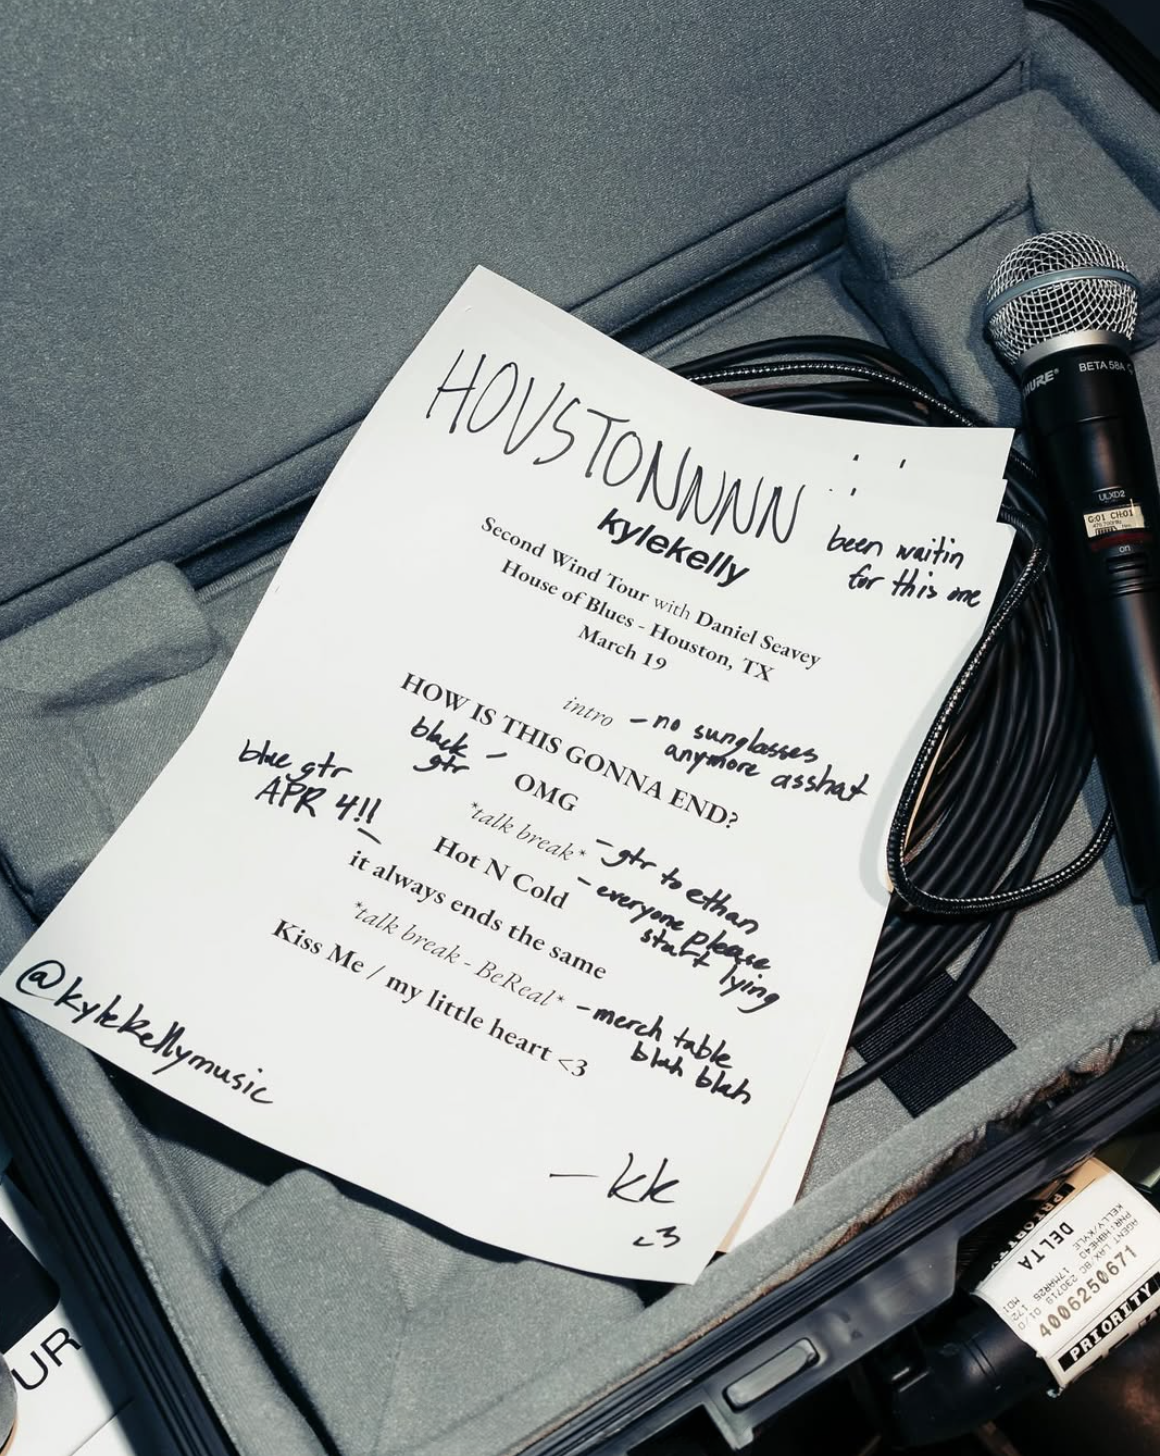 HOUSTONNNN
been waitin
for this one
kylekelly
Second Wind Tour with Daniel Seavey
House of Blues - Houston, TX
March 19
intro
- no sunglasses
anymore asshat
HOW IS THIS GONNA END?
black
gtr -
OMG
*talk break*
- gtr to ethan
blue gtr
APR 4!!
Hot N Cold
- everyone please
start lying
it always ends the same
*talk break - BeReal*
- merch table
blah blah
Kiss Me / my little heart <3
@kylekellymusic
- kk
<3
SHURE®
BETA 58A
ULXD2
G:01 CH:01
on
UR
PRIORITY
DELTA
KELLY/KYLE
4006250671
PRIORITY